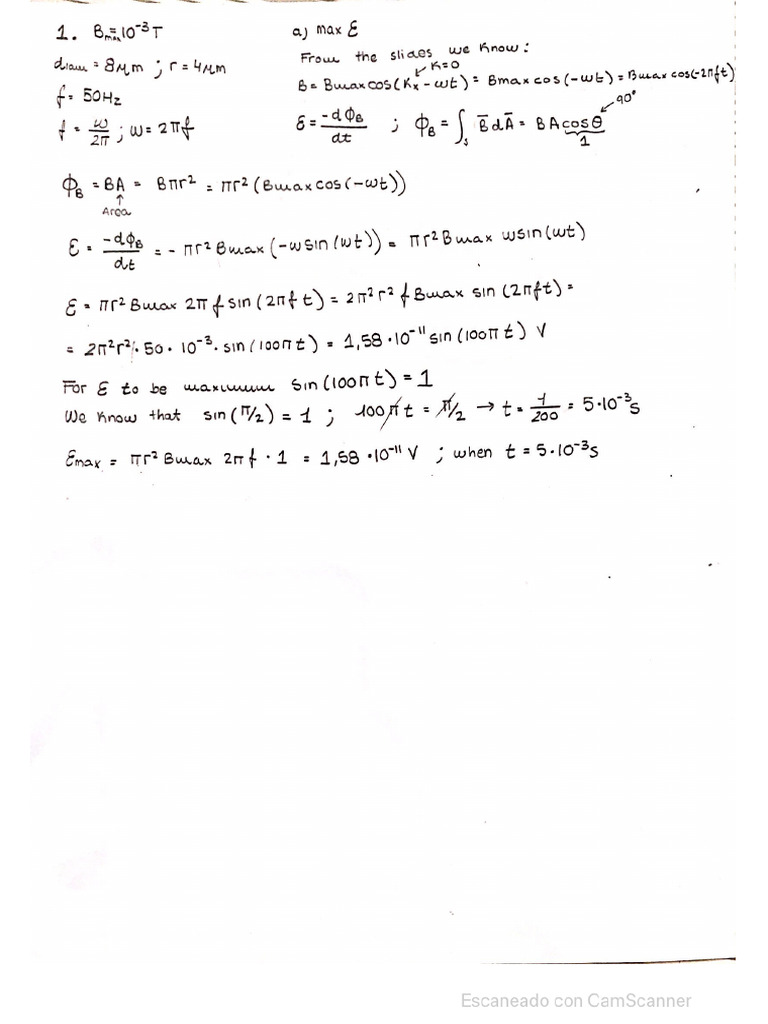 1. Bmax = 10⁻³ T
diam = 8μm ; r = 4μm
f = 50Hz
f = ω/2π ; ω = 2πf
a) max Ɛ
From the slides we know :
K=0
B = Bmax cos(Kx - ωt) = Bmax cos(-ωt) = Bmax cos(-2πft)
90°
Ɛ = -dΦB/dt ; ΦB = ∫s B̄ dĀ = BA cosθ
1
ΦB = BA = Bπr² = πr² (Bmax cos(-ωt))
↑
Area
Ɛ = -dΦB/dt = - πr² Bmax (-ω sin(ωt)) = πr² Bmax ω sin(ωt)
Ɛ = πr² Bmax 2π f sin(2πf t) = 2π² r² f Bmax sin (2πft) =
= 2π²r² · 50 · 10⁻³ · sin(100πt) = 1,58 · 10⁻¹¹ sin(100πt) V
For Ɛ to be maximum sin(100πt) = 1
We know that sin(π/2) = 1 ; 100πt = π/2 → t = 1/200 = 5·10⁻³s
Ɛmax = πr² Bmax 2πf · 1 = 1,58 · 10⁻¹¹ V ; when t = 5·10⁻³s
Escaneado con CamScanner